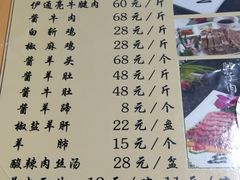 伊通亮牛腱肉 60元/斤
酱牛肉 68元/斤
白斩鸡 28元/斤
椒麻鸡 28元/斤
酱羊头 68元/个
酱羊肚 48元/斤
酱牛肚 48元/斤
酱羊蹄 8元/个
椒盐羊肝 22元/盆
羊肺 15元/个
酸辣肉丝汤 28元/盆